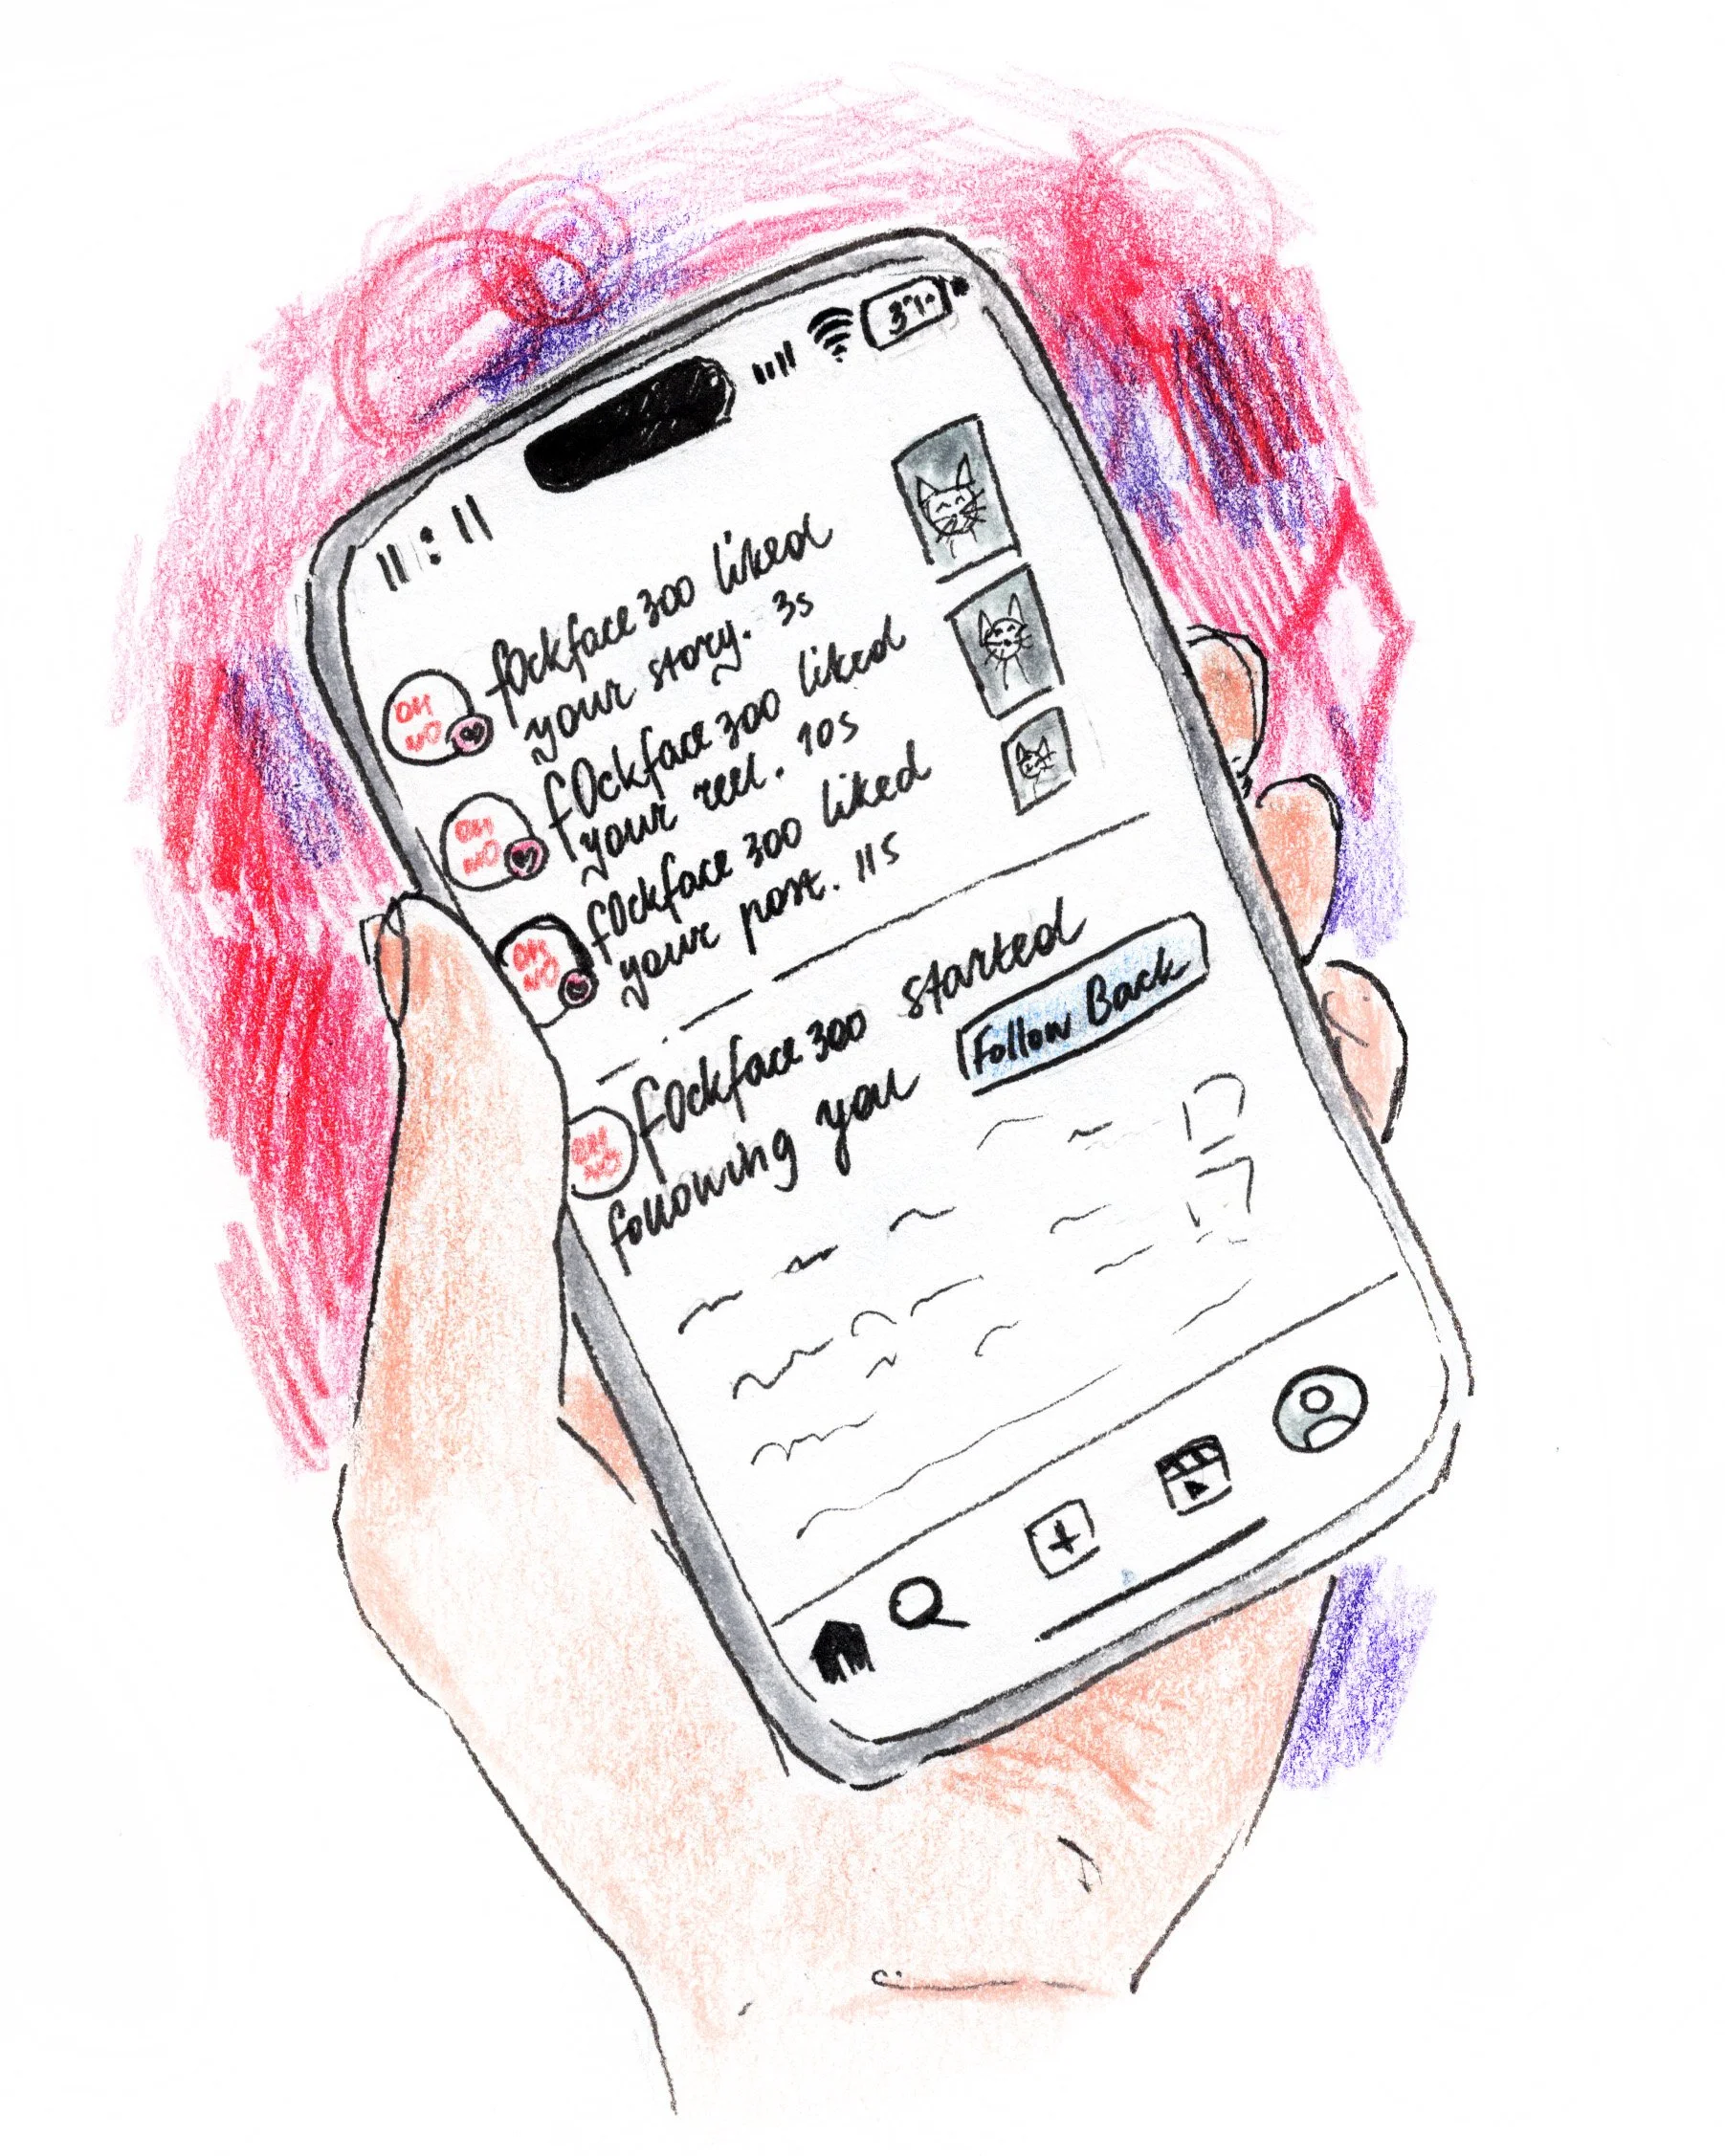 11:11
37%
f0ckface300 liked
your story. 3s
OH
NO
f0ckface300 liked
your reel. 10s
OH
NO
f0ckface300 liked
your post. 11s
OH
NO
f0ckface300 started
following you
Follow Back
OH
NO